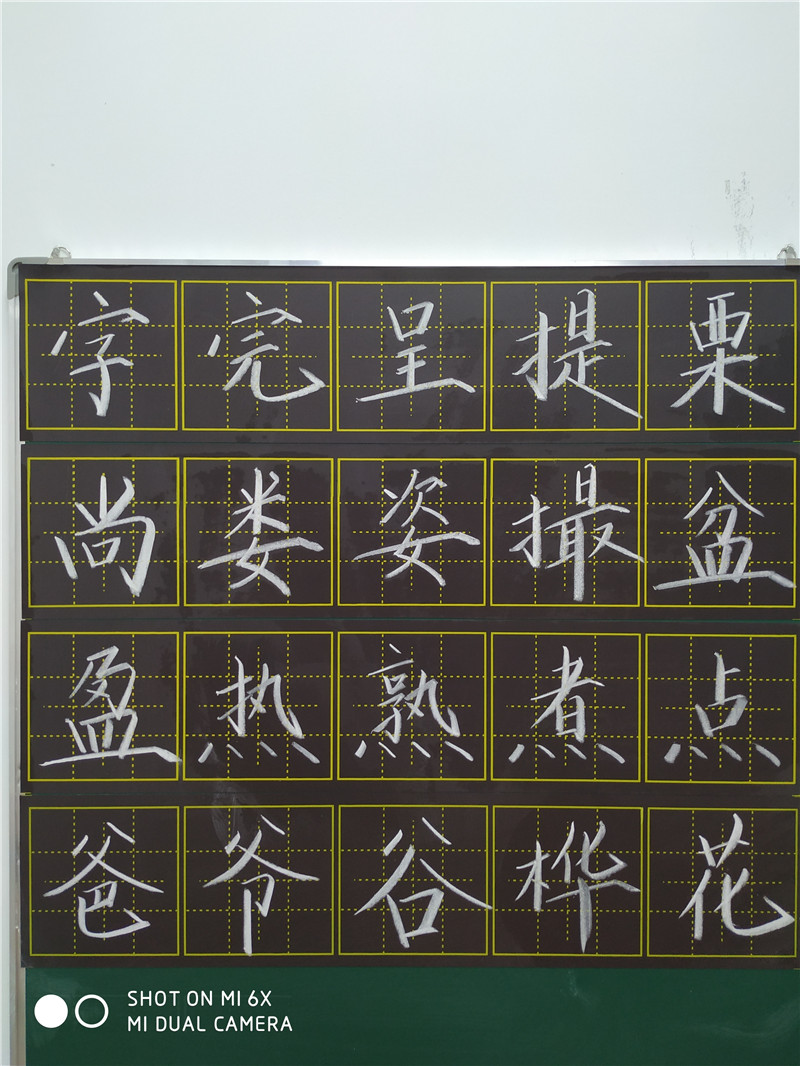 字完呈提栗
尚娄姿撮盆
盈热熟煮点
爸爷谷桦花
SHOT ON MI 6X
MI DUAL CAMERA